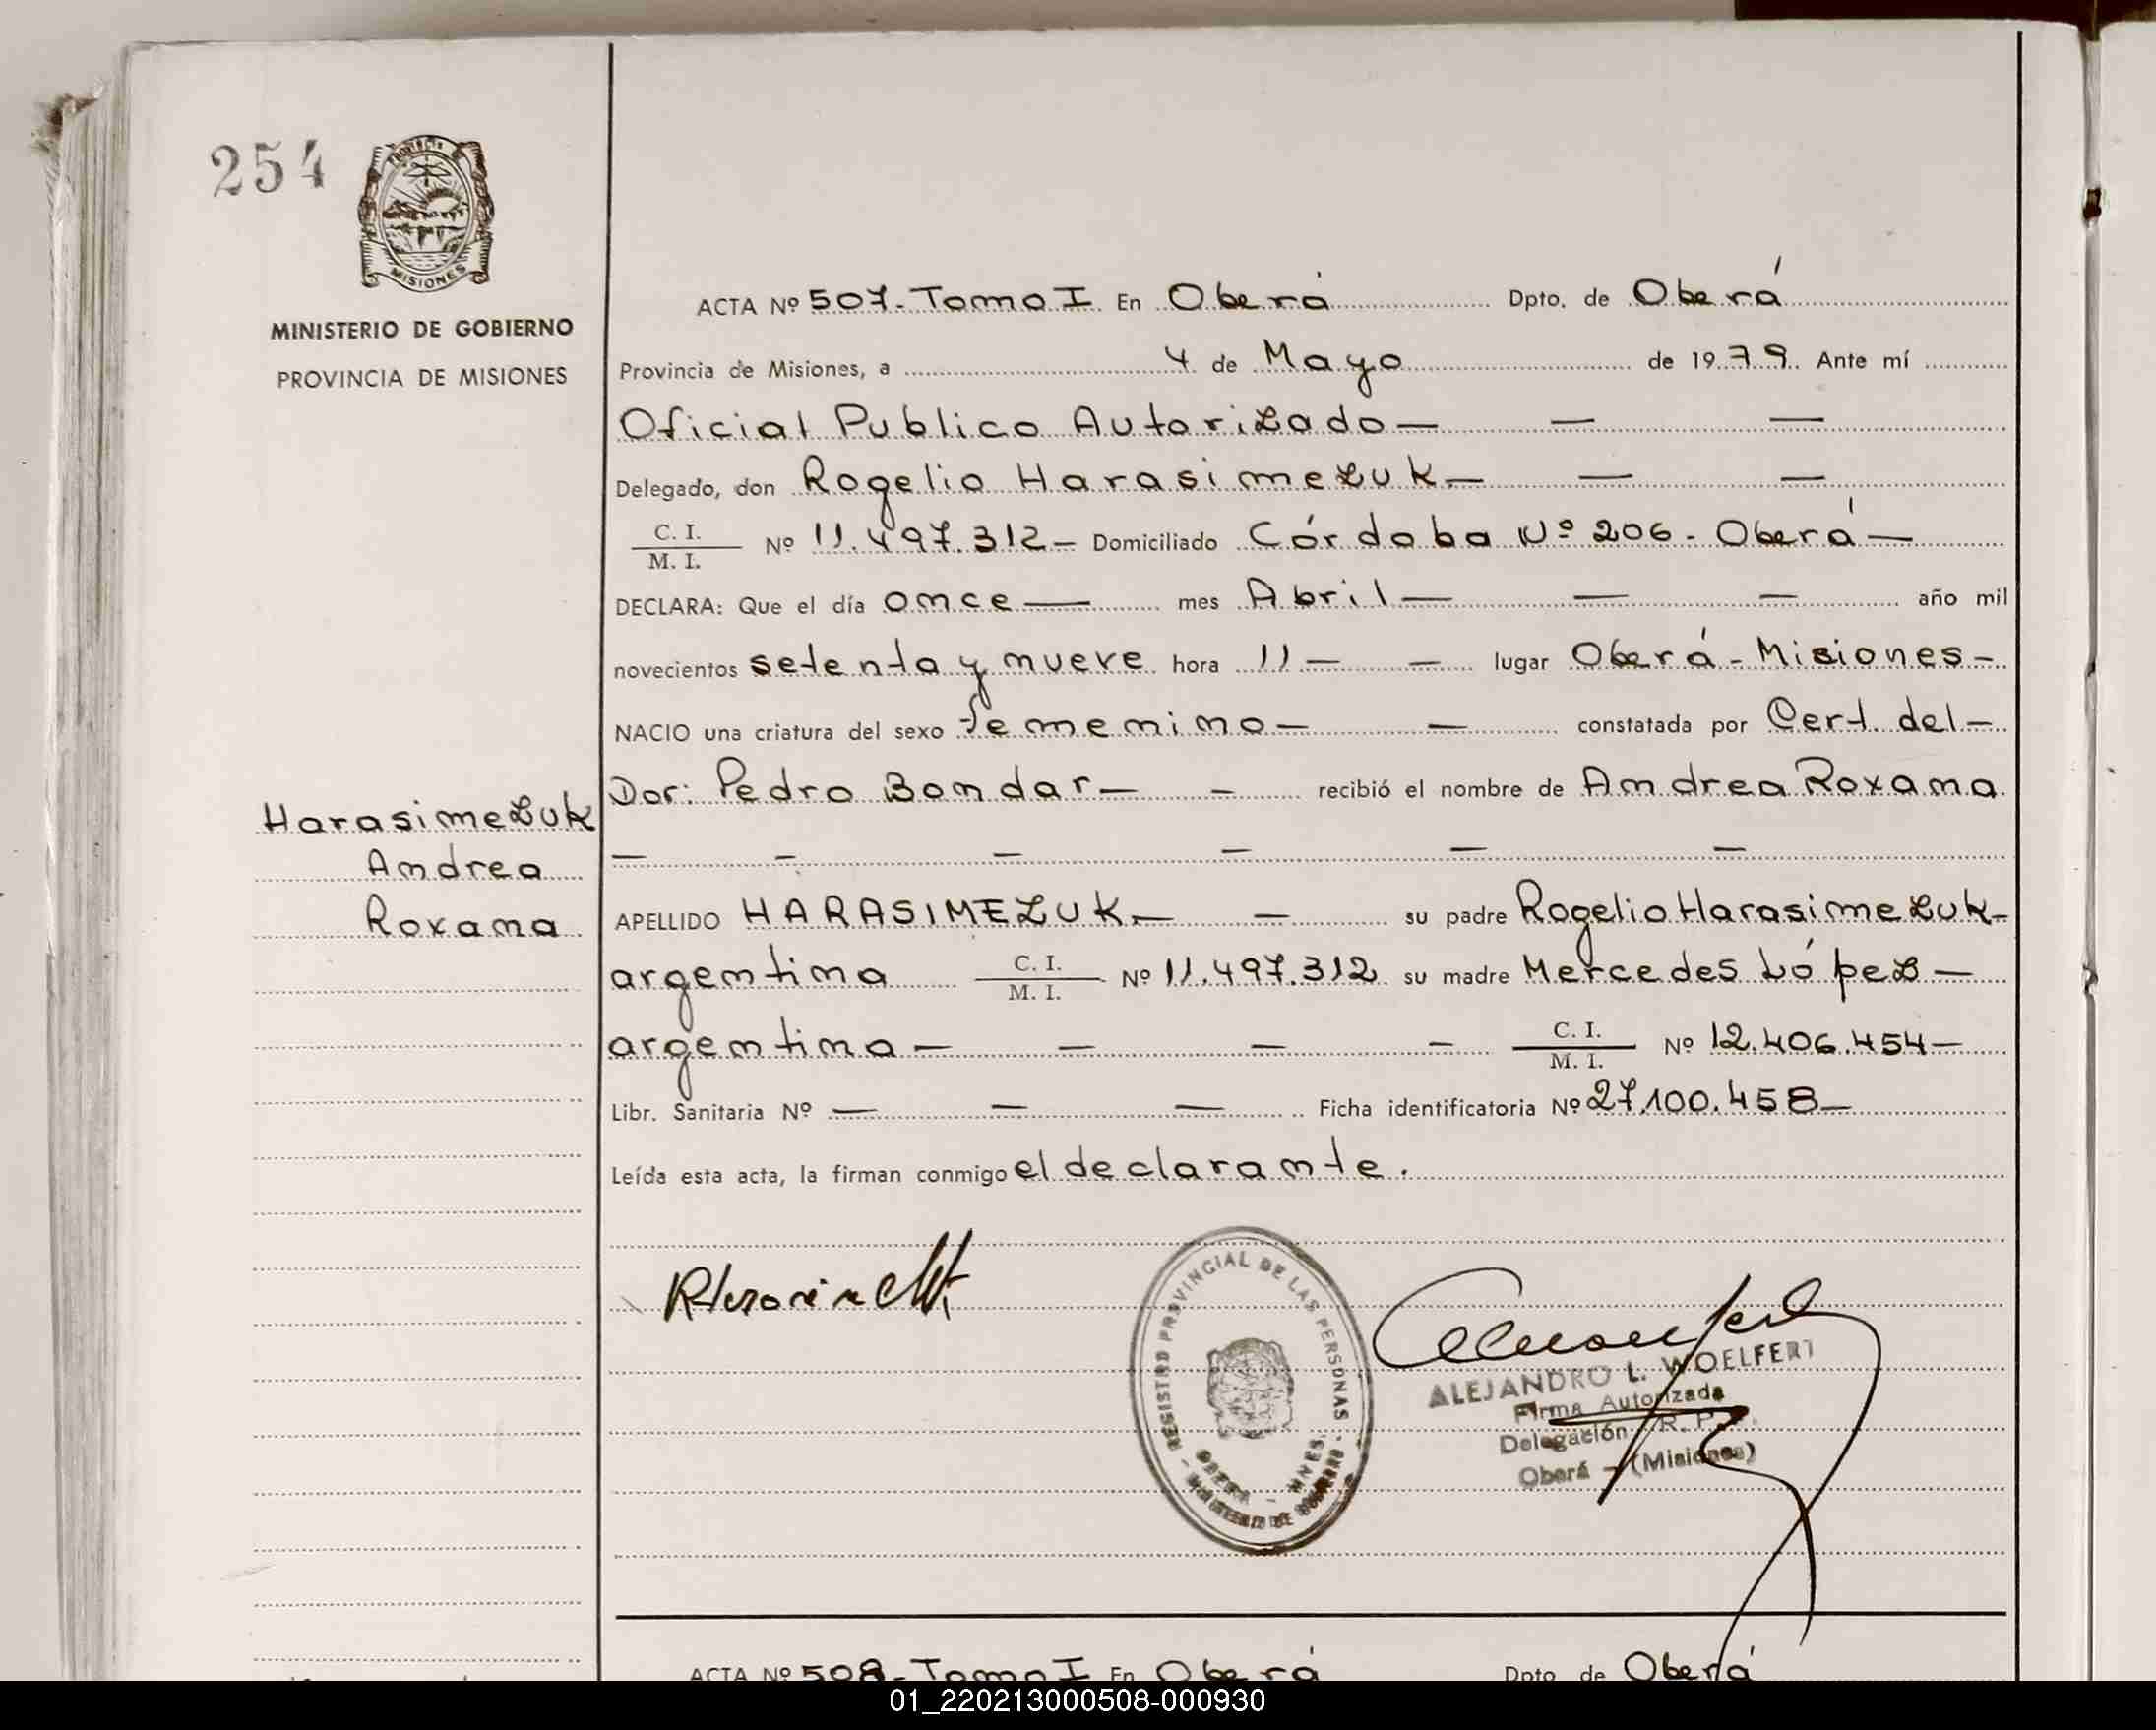 254
PROVINCIA DE
MISIONES
MINISTERIO DE GOBIERNO
PROVINCIA DE MISIONES
Harasimezuk
Andrea
Roxana
ACTA Nº 507-Tomo I En Oberá Dpto. de Oberá
Provincia de Misiones, a 4 de Mayo de 1979 Ante mí
Oficial Publico Autorizado —
Delegado, don Rogelio Harasimezuk —
C. I. / M. I. Nº 11.497.312 — Domiciliado Córdoba Nº 206 - Oberá —
DECLARA: Que el día once — mes Abril — año mil
novecientos setenta y nueve hora 11 — lugar Oberá - Misiones -
NACIO una criatura del sexo femenino — constatada por Cert. del —
Dor: Pedro Bondar — recibió el nombre de Andrea Roxana
— — — — — —
APELLIDO HARASIMEZUK — su padre Rogelio Harasimezuk -
argentina C. I. / M. I. Nº 11.497.312 su madre Mercedes López —
argentina — C. I. / M. I. Nº 12.406.454 —
Libr. Sanitaria Nº — Ficha identificatoria Nº 27.100.458 —
Leída esta acta, la firman conmigo el declarante.
REGISTRO PROVINCIAL DE LAS PERSONAS - MINISTERIO DE GOBIERNO
OBERA - MNES.
ALEJANDRO L. WOELFERT
Firma Autorizada
Delegación R. P. P.
Oberá - (Misiones)
ACTA Nº 508-Tomo I En Oberá Dpto. de Oberá
01_220213000508-000930